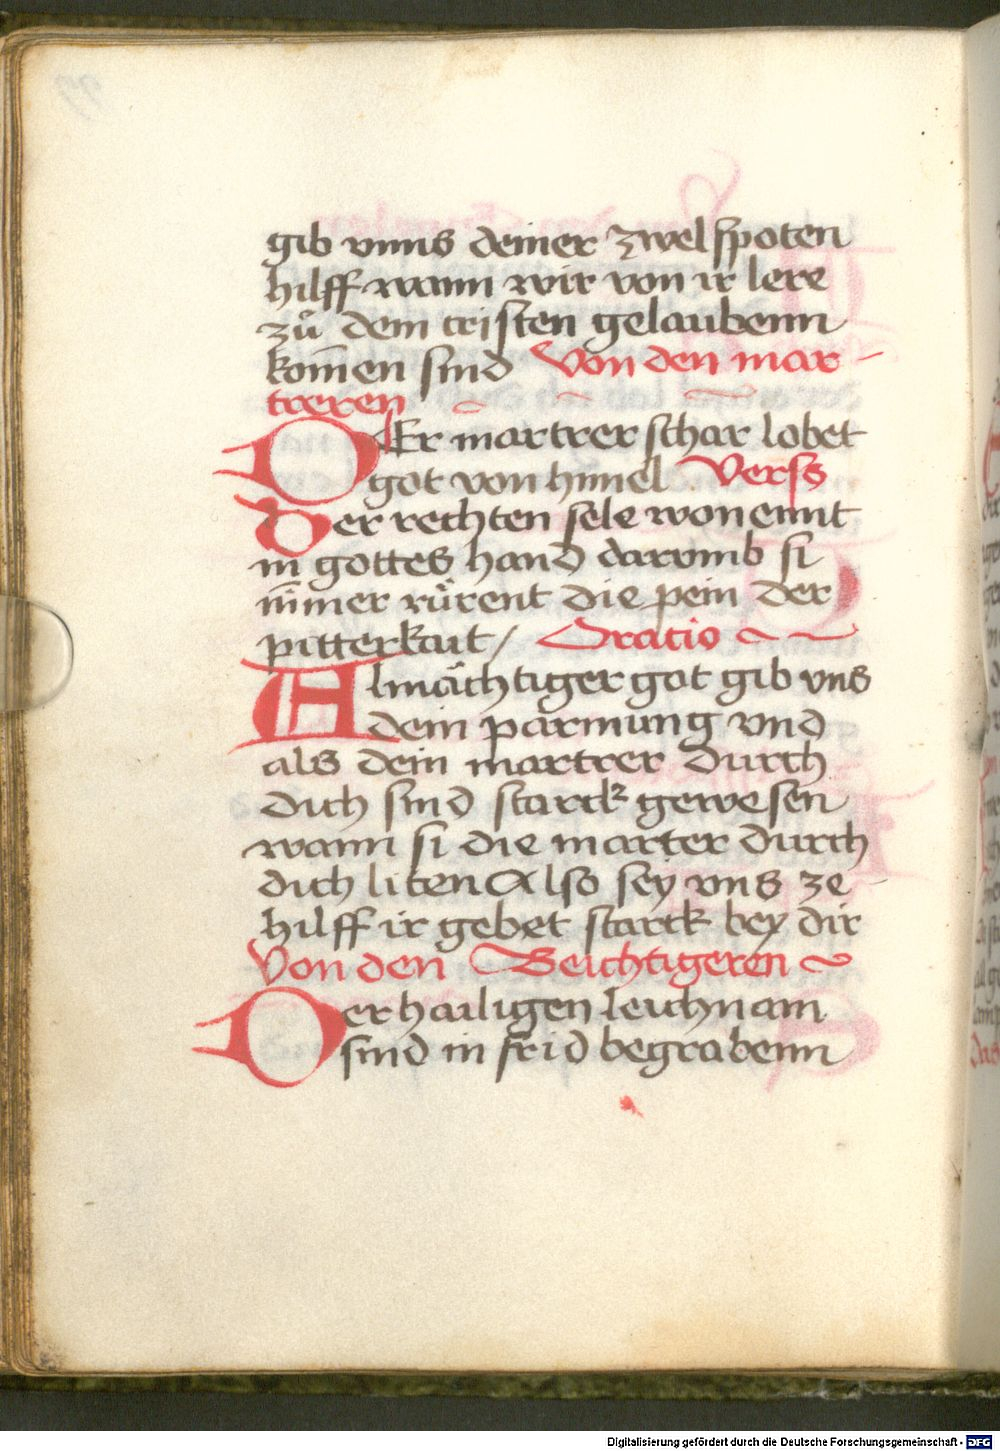 gib vnns deiner zwelfpoten
hilff wann wir von ir lere
zů dem cristen gelaubenn
kom̄en sind Von den mar-
treren
DEr martrer schar lobet
got von himel Verss
der rechten sele wonennt
in gottes hand darvmb si
nim̄er růrent die pein der
pitterkait / Oratio
Almächtiger got gib vns
dein parmung vnd
als dein martrer durch
dich sind starck gewesen
wann si die marter durch
dich liten Also sey vns ze
hilff ir gebet starck bey dir
Von den Beichtigeren
Der hailigen leichnam
sind in frid begrabenn
Digitalisierung gefördert durch die Deutsche Forschungsgemeinschaft - DFG